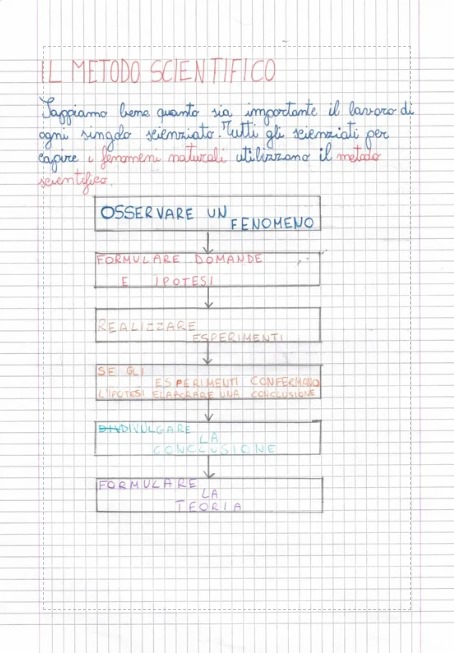 IL METODO SCIENTIFICO
Sappiamo bene quanto sia importante il lavoro di
ogni singolo scienziato. Tutti gli scienziati per
capire i fenomeni naturali utilizzano il metodo
scientifico.
OSSERVARE UN
FENOMENO
FORMULARE DOMANDE
E IPOTESI
REALIZZARE
ESPERIMENTI
SE GLI
ESPERIMENTI CONFERMANO
L'IPOTESI ELABORARE UNA CONCLUSIONE
DIVULGARE
LA
CONCLUSIONE
FORMULARE
LA
TEORIA